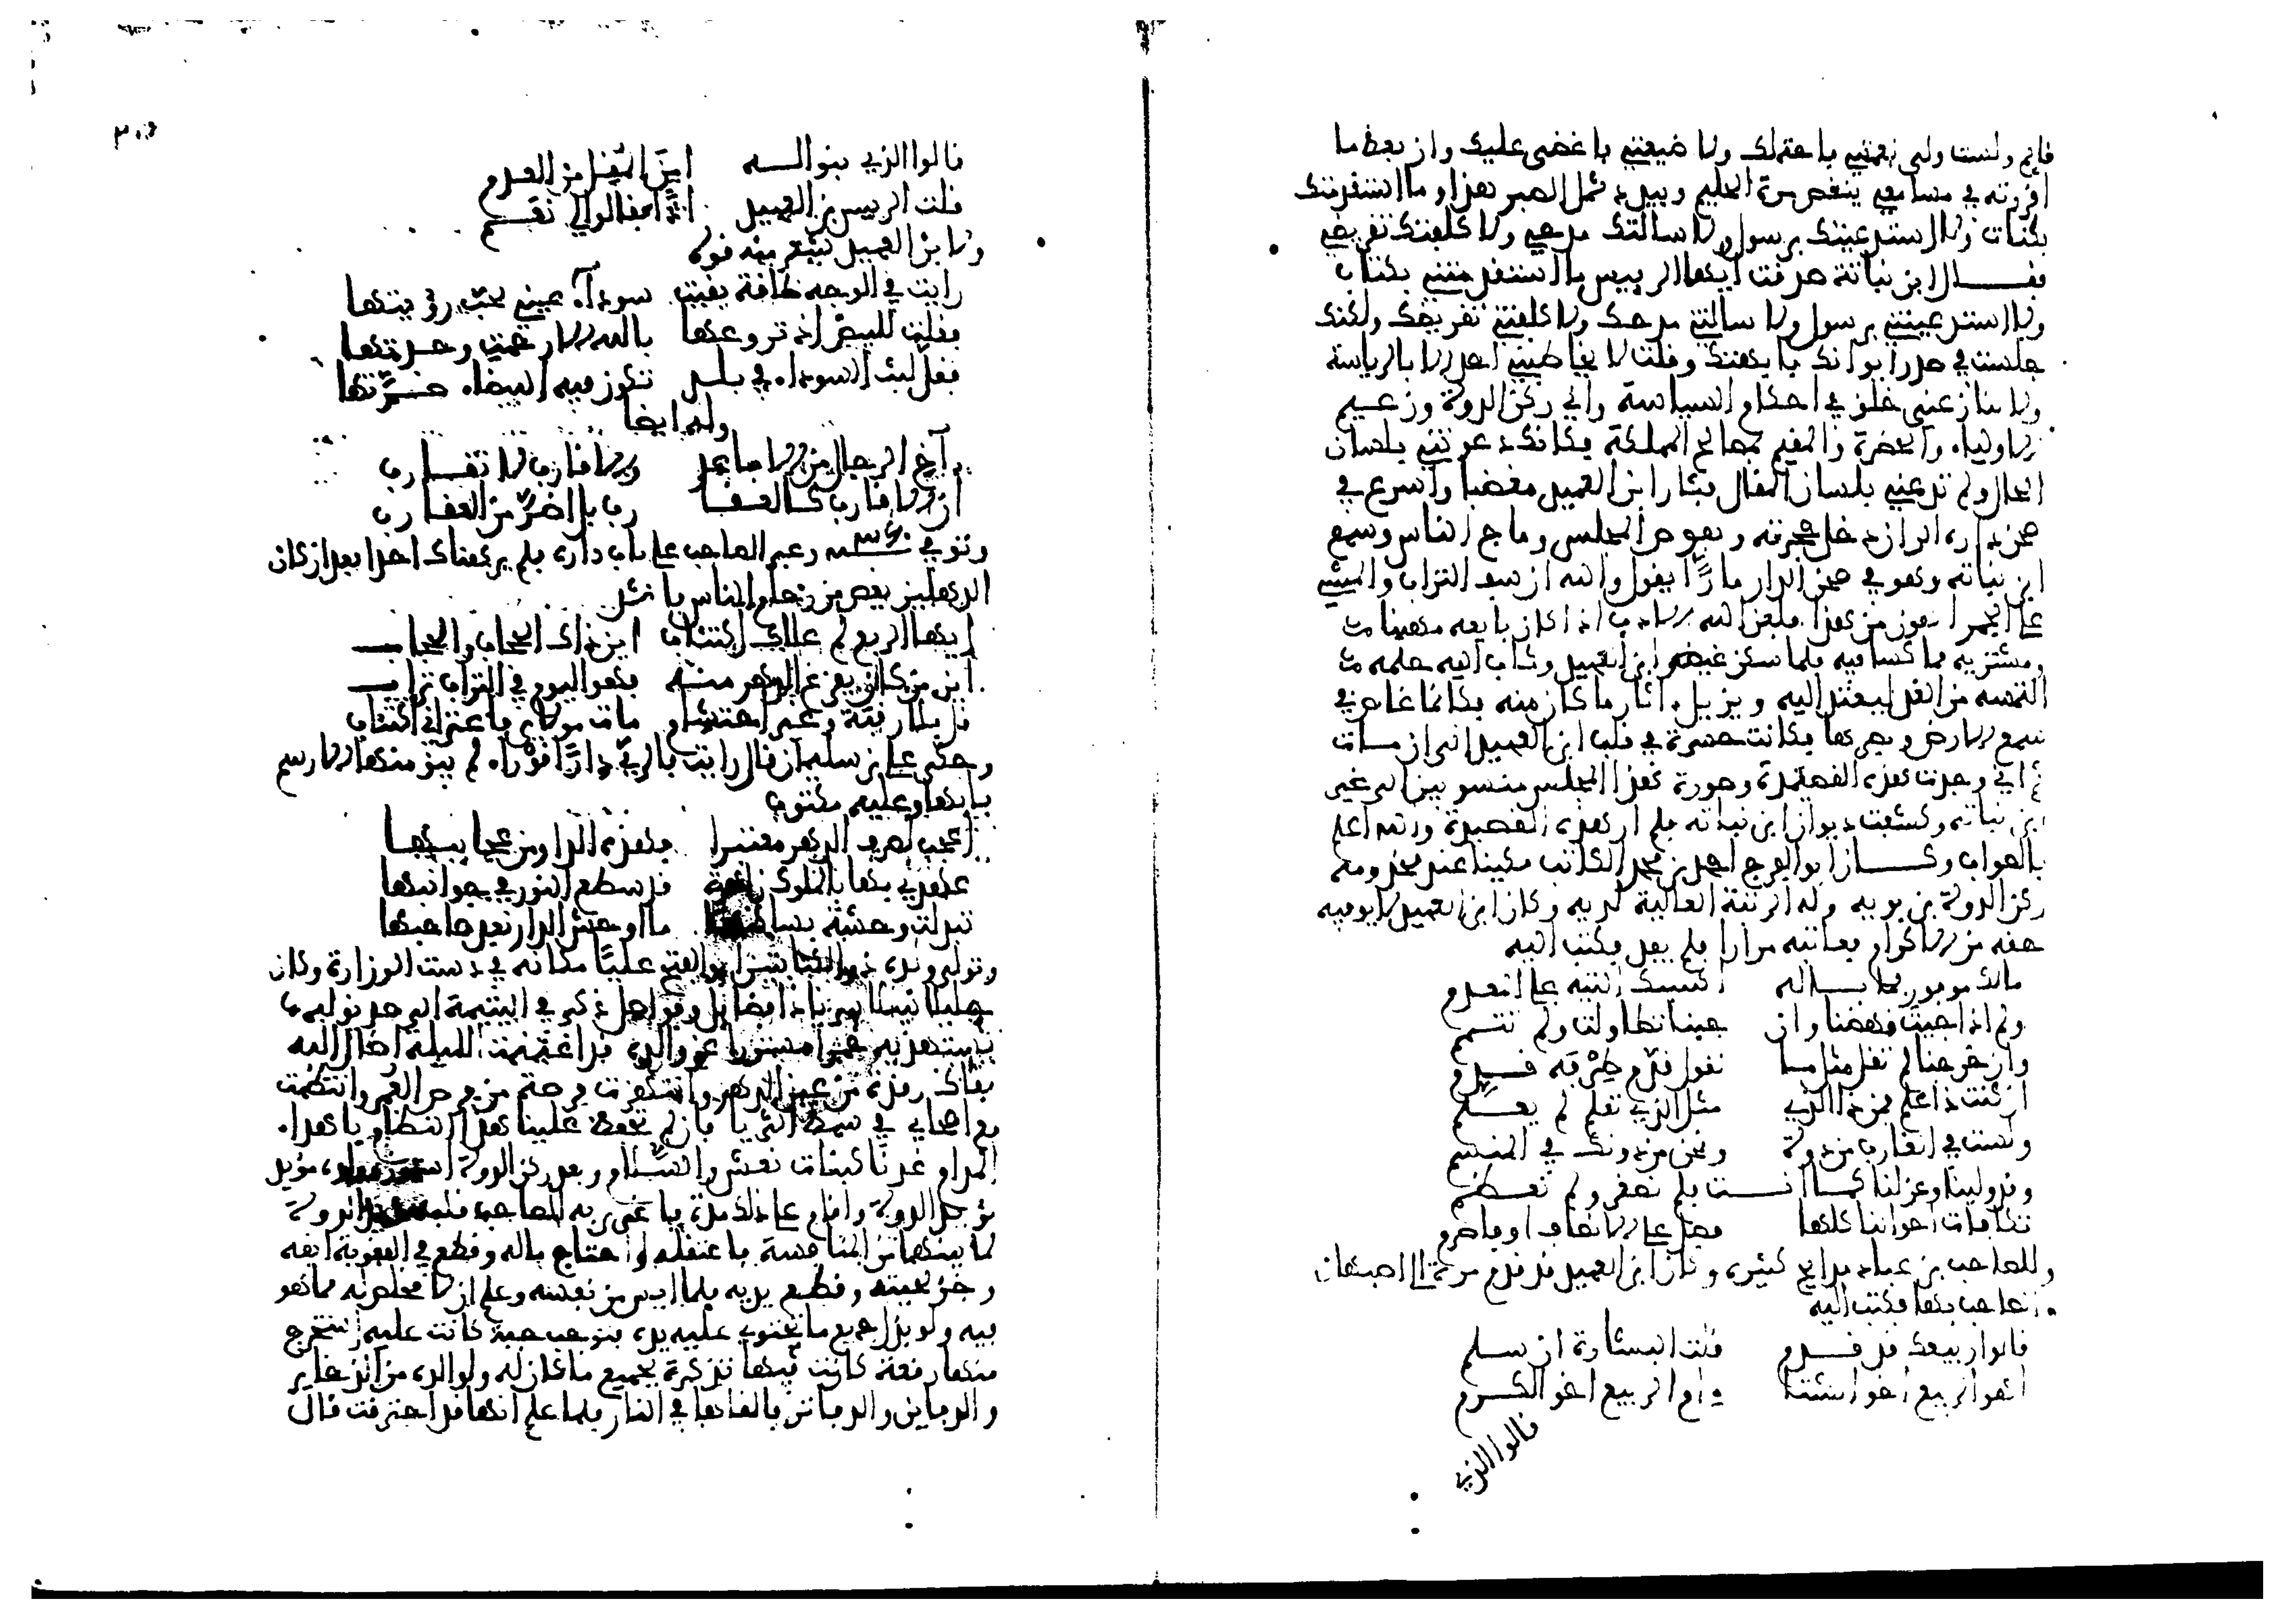 فإني ولست ولي نعمتي فأحتملك ولا صنيعتي فأغضي عليك وإن بعض ما
أقررته في مسامعي ينقض مرة الحليم ويبدد شمل الصبر هذا وما استقدمتك
بكتاب ولا استدعيتك برسول ولا سألتك مدحي ولا كلفتك تقريضي
فقال ابن نباتة صدقت أيها الرئيس ما استقدمتني بكتاب
ولا استدعيتني برسول ولا سألتني مدحك ولا كلفتني تقريضك ولكنك
جلست في صدر إيوانك بأبهتك وقلت لا يخاطبني أحد إلا بالرياسة
ولا ينازعني خلق في أحكام السياسة فإني ركن الدولة وزعيم
الأولياء والحضرة والقيم بمصالح المملكة فكأنك دعوتني بلسان
الحال ولم تدعني بلسان المقال فثار ابن العميد مغضبا وأسرع في
صحن داره إلى أن دخل حجرته وتقوض المجلس وماج الناس وسمع
ابن نباتة وهو في صحن الدار مارا يقول والله إن سف التراب والمشي
على الجمر أهون من هذا فلعن الله الأدب إذا كان بايعه مهينا
ومشتريه مماكسا فيه فلما سكن غيظ ابن العميد وثاب إليه حلمه
التمسه من الغد ليعتذر إليه ويزيل آثار ما كان منه فكأنما غاص في
سمع الأرض وبصرها فكانت حسرة في قلب ابن العميد إلى أن مات
ثم إني وجدت هذه القصيدة وصورة هذا المجلس منسوبين إلى غير
ابن نباتة وكشفت ديوان ابن نباتة فلم أر هذه القصيدة والله أعلم
بالصواب وكان أبو الفرج أحمد بن محمد الكاتب مكينا عند مخدومه
ركن الدولة بن بويه وله الرتبة العالية لديه وكان ابن العميد لا يوفيه
حقه من الإكرام فعاتبه مرارا فلم يفد فكتب إليه
مالك موفور فما باله أكسبك التيه على المعدم
ولم إذا جيت نهضنا وإن جينا تطاولت ولم تتمم
وإن خرجنا لم تقل مثل ما نقول قدم طرفه قدم
إن كنت ذا علم فمن ذا الذي مثل الذي تعلم لم يعلم
ولست في الغارب من دولة ونحن من دونك في المنسم
وقد ولينا وعزلنا كما أنت فلم نصغر ولم تعظم
تكافأت أحوالنا كلها فصل على الإنصاف أو فاصرم
وللصاحب بن عباد مدايح كثيرة وكان ابن العميد قد قدم مرة إلى اصبهان
والصاحب بها فكتب إليه
قالوا ربيعك قد قدم قلت البشارة إن سلم
أهو الربيع أخو الشتا أم الربيع أخو الكرم
قالوا الذي
قالوا الذي بنواله أمن المقل من العدم
قلت الرئيس بن العميد إذا فقالوا لي نعم
ولابن العميد شعر منه قوله
رأيت في الوجه طاقة بقيت سوداء عيني تحب رؤيتها
فقلت للبيض إذ تروعها بالله إلا رحمت وحدتها
فقل لبث السوداء في بلد تكون فيه البيضاء ضرتها
وله أيضا
آخ الرجال من الأباعد والأقارب لا تقارب
إن الأقارب كالعقارب بل أضر من العقارب
وتوفي سنة وعبر الصاحب على باب داره فلم ير هناك أحدا بعد أن كان
الدهليز يغص من زحام الناس فأنشد
أيها الربع لم علاك اكتئاب أين ذاك الحجاب والحجاب
أين من كان يفزع الدهر منه فهو اليوم في التراب تراب
قل بلا رقبة وغير احتشام مات مولاي فاعتراني اكتئاب
وحكى علي بن سليمان قال رأيت بالري دارا قوراء لم يبق منها إلا رسم
بابها وعليه مكتوب
اعجب لصرف الدهر معتبرا فهذه الدار من عجايبها
عهدي بها بالملوك زاهية قد سطع النور في جوانبها
تبدلت وحشة بساكنها ما أوحش الدار بعد صاحبها
وتولى ولده ذو الكفايتين أبو الفتح عليا مكانه في دست الوزارة وكان
جليلا نبيلا سريا ذا فضايل وفواضل ذكره في اليتيمة
يستهديه خمرا مستورا عن والده قد اغتنمت الليلة أطال الله
بقاك رقدة من عين الدهر وانتهزت فرصة من فرص العمر وانتظمت
مع أصحابي في سمط الثريا فإن لم تحفظ علينا هذا النظام بإهداء
المدام عدنا كبنات نعش والسلام وبعد ركن الدولة استوزره ولده مؤيد
الدولة وأقام على ذلك مدة
لما بينهما من المنافسة فاعتقله واحتاج ماله وقطع في العقوبة أنفه
وجز لحيته وقطع يديه فلما أيس من نفسه وعلم أن لا مخلص له مما هو
فيه ولو بذل جميع ما تحتوي عليه يده فتق جيب جبة كانت عليه استخرج
منها رقعة كانت فيها تذكرة بجميع ما كان له ولوالده من الذخاير
والدفاين والدفاتر فألقاها في النار فلما علم أنها قد احترقت قال